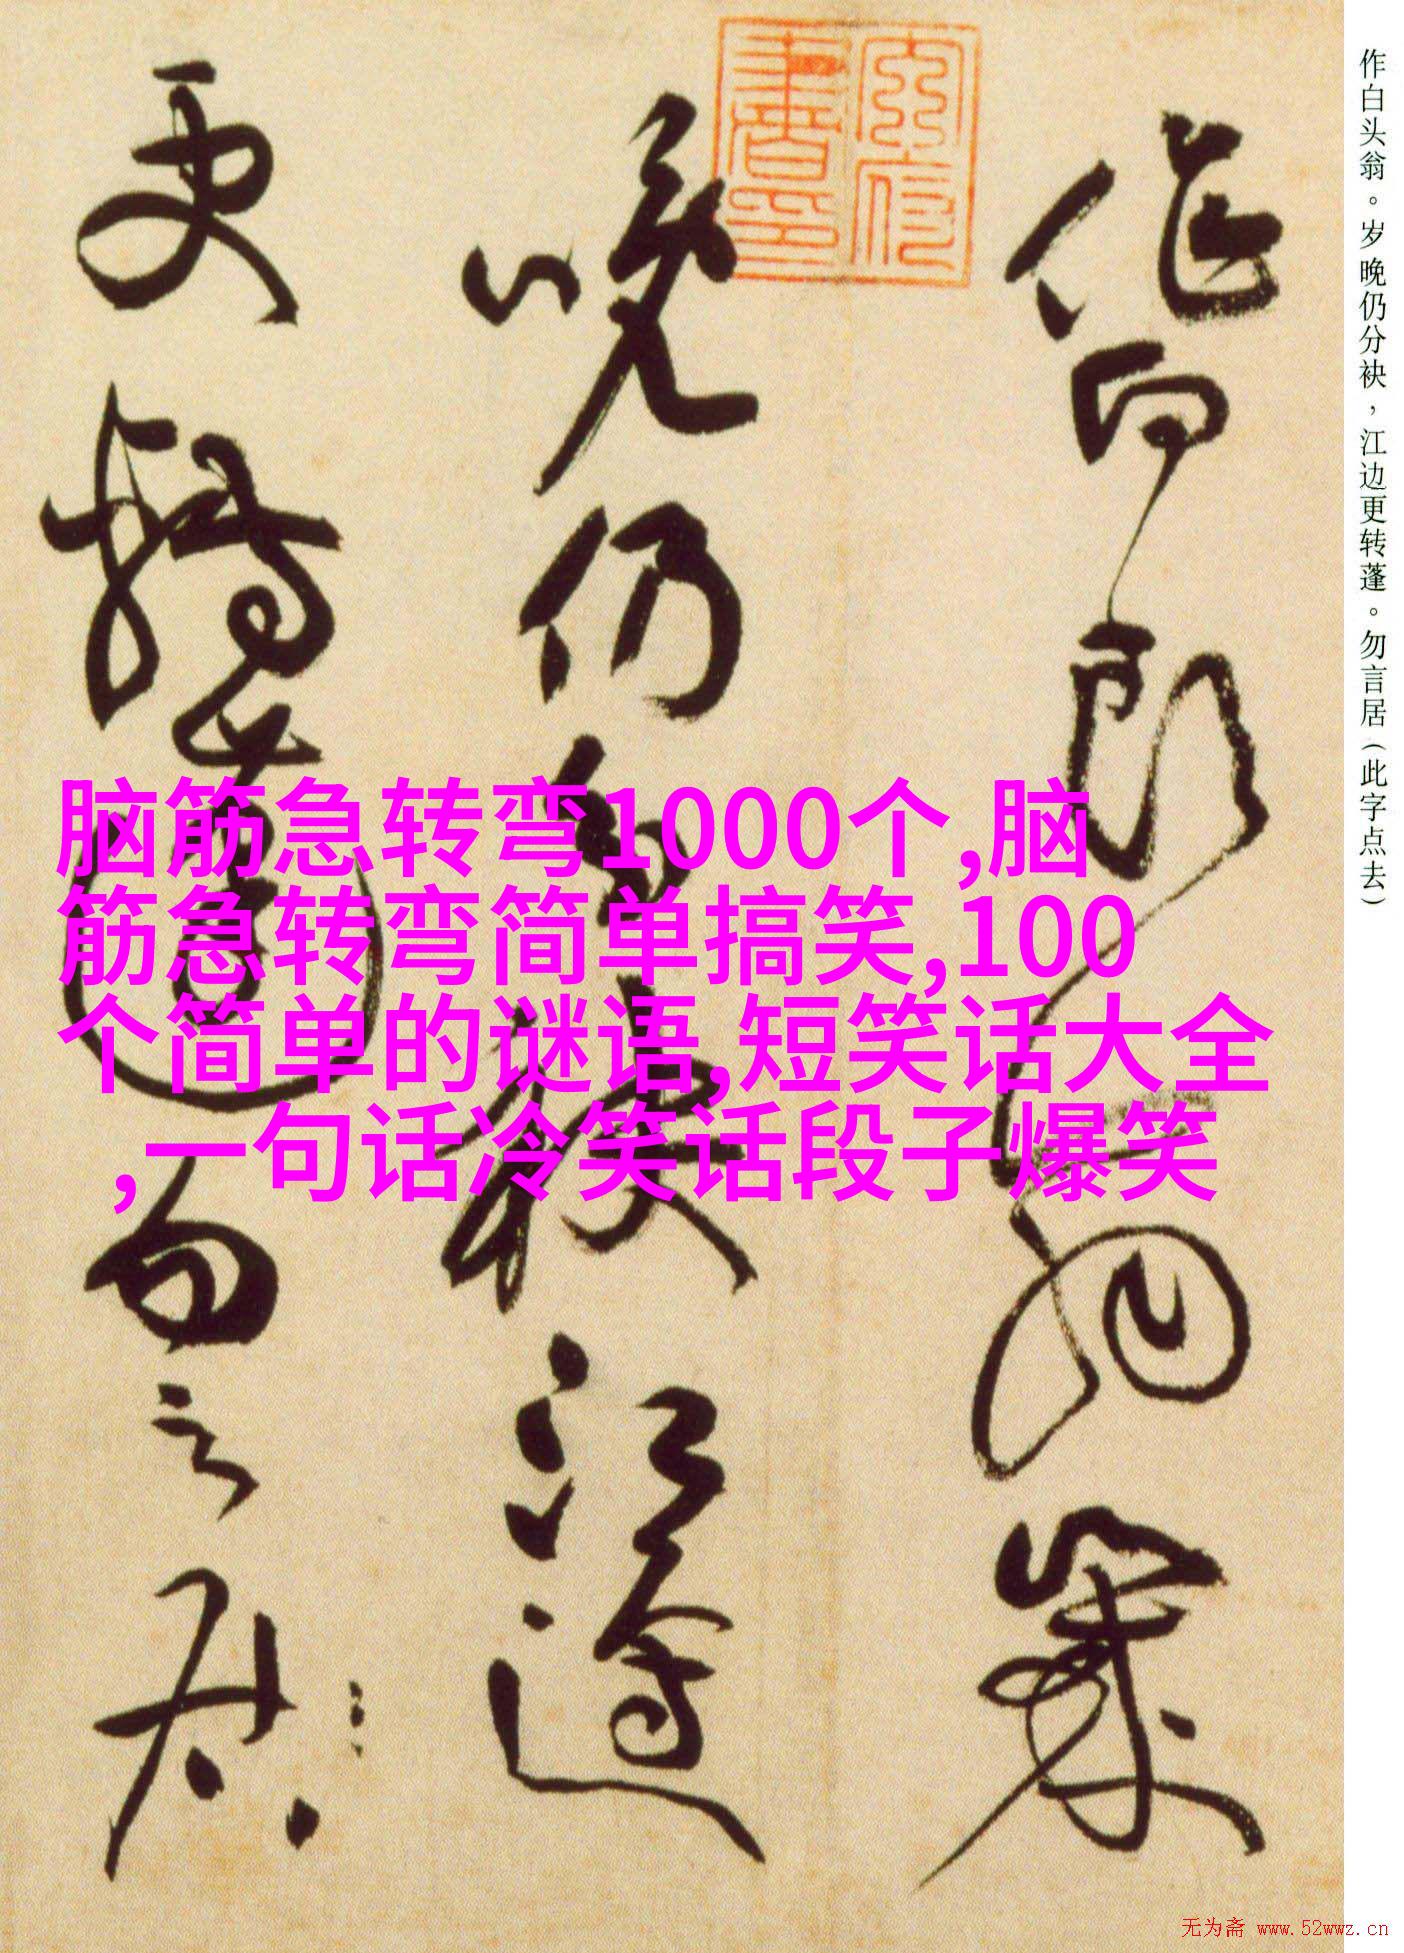 作白头翁。岁晚仍分袂，江边更转蓬。勿言居（此字点去）
作白头翁岁
晚仍分袂江边
更转蓬勿言居
脑筋急转弯1000个,脑
筋急转弯简单搞笑,100
个简单的谜语,短笑话大全
,一句话冷笑话段子爆笑
无为斋 www.52wwz.cn